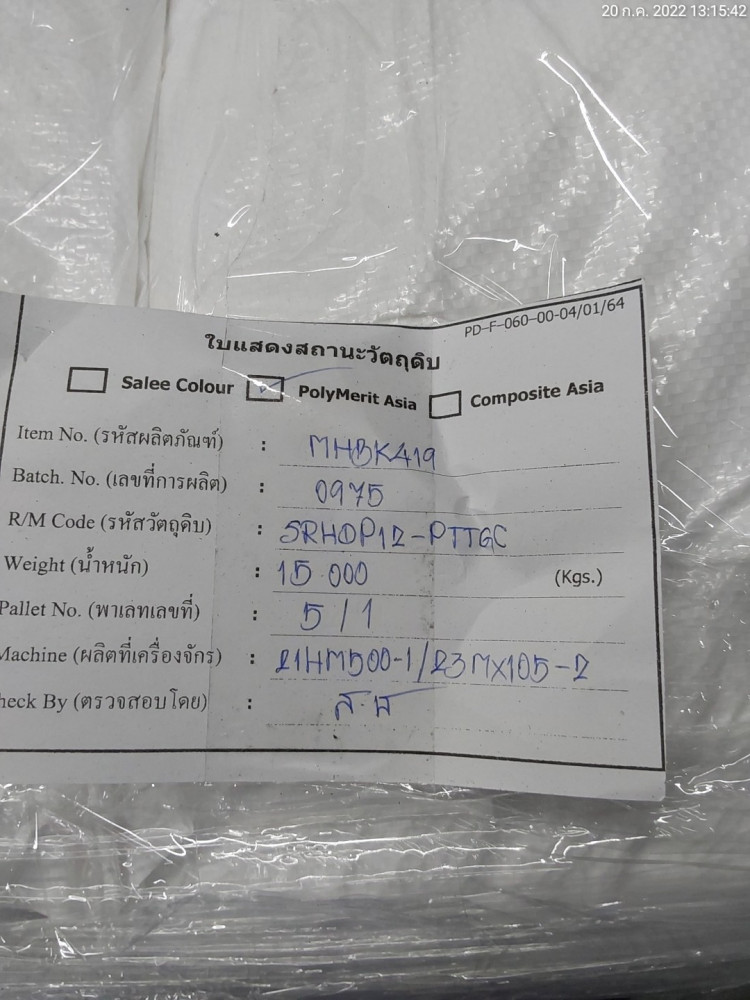 20 ก.ค. 2022 13:15:42
PD-F-060-00-04/01/64
ใบแสดงสถานะวัตถุดิบ
Salee Colour PolyMerit Asia Composite Asia
Item No. (รหัสผลิตภัณฑ์) : MHBK419
Batch. No. (เลขที่การผลิต) : 0975
R/M Code (รหัสวัตถุดิบ) : SRHDP12-PTTGC
Weight (น้ำหนัก) : 15.000 (Kgs.)
Pallet No. (พาเลทเลขที่) : 5/1
Machine (ผลิตที่เครื่องจักร) : 21HM500-1/23MX105-2
heck By (ตรวจสอบโดย) :